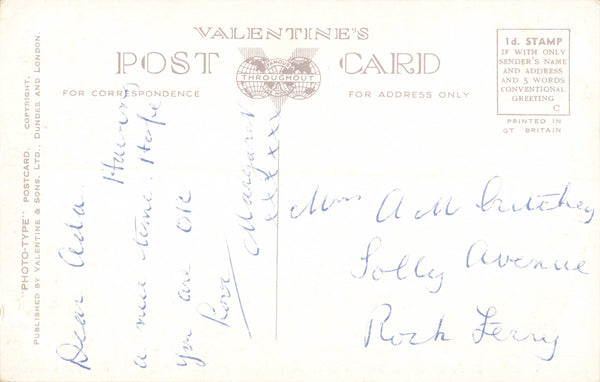 VALENTINE'S
POST CARD
FAMOUS
THROUGHOUT
FOR CORRESPONDENCE
FOR ADDRESS ONLY
1d. STAMP
IF WITH ONLY
SENDER'S NAME
AND ADDRESS
AND 5 WORDS
CONVENTIONAL
GREETING
C
PRINTED IN
GT. BRITAIN
"PHOTO-TYPE" POSTCARD. COPYRIGHT.
PUBLISHED BY VALENTINE & SONS, LTD., DUNDEE AND LONDON.
Dear Ada. Having
a nice time. Hope
you are OK
Love
Margaret
xxxxxxx
Mrs A M Critchley
Solly Avenue
Rock Ferry